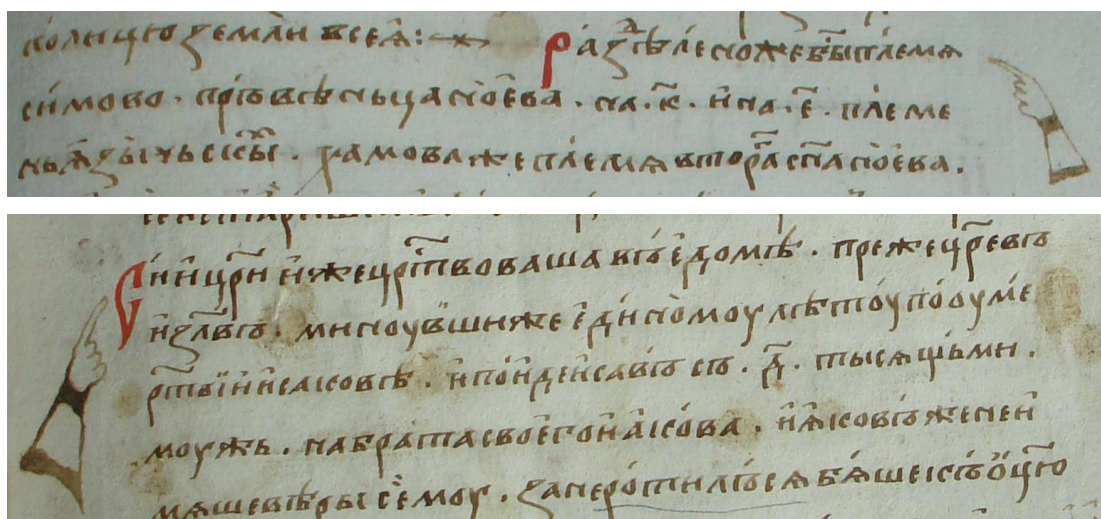 полницю земли всеꙗ҃ :
Раздѣлено же бы́ племѧ
симово . прьвѣньца ноева . на . к҃ . и на . е҃ . племе
ньꙗзычьскы . хамова же племѧ вторасна ноева .
Сии цр҃и иже цр҃ствоваша въ едомѣ . преже цр҃евъ
из҃лвъ . минувши же единомоу лѣтоу по оуме
рт҃вьи исаковѣ . и поиде исавъ съ . д҃ . тысѧщьми .
моужь . на брата своего иꙗкова . иꙗковъ же не и
мѧше вѣры емоу . заперотилъсѧ бѧше къ ѿцю